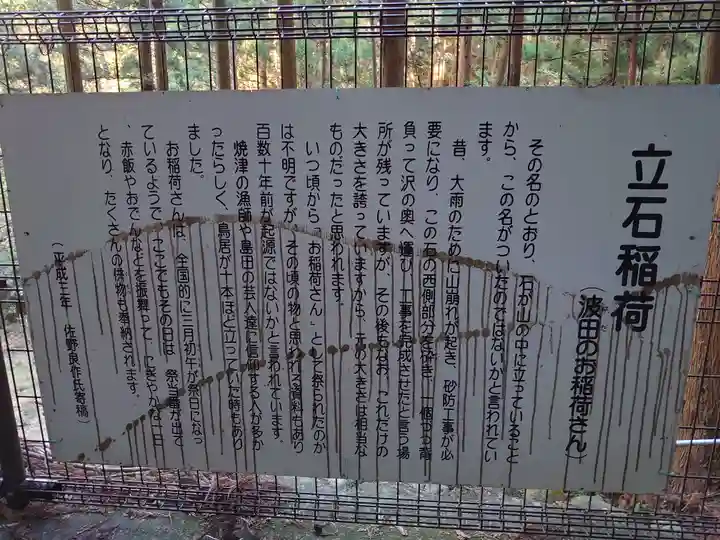 立石稲荷
(波田のお稲荷さん)
その名のとおり、石が山の中に立っていること
から、この名がついたのではないかと言われてい
ます。
昔、大雨のために山崩れが起き、砂防工事が必
要になり、この石の西側部分を砕き、一個づつ背
負って沢の奥へ運び、工事を完成させたと言う場
所が残っていますが、その後もなお、これだけの
大きさを誇っていますから、元の大きさは相当な
ものだったと思われます。
いつ頃から「お稲荷さん」として祭られたのか
は不明ですが、その頃の物と思われる資料もあり
百数十年前が起源ではないかと言われています。
焼津の漁師や島田の芸人達に信仰する人が多か
ったらしく、鳥居が十本ほど立っていた時もあり
ました。
お稲荷さんは、全国的に二月初午が祭日になっ
ているようで、ここでもその日は、祭当番が出て
、赤飯やおでんなどを振舞って、にぎやかな一日
となり、たくさんの供物も奉納されます。
(平成三年 佐野良作氏寄稿)